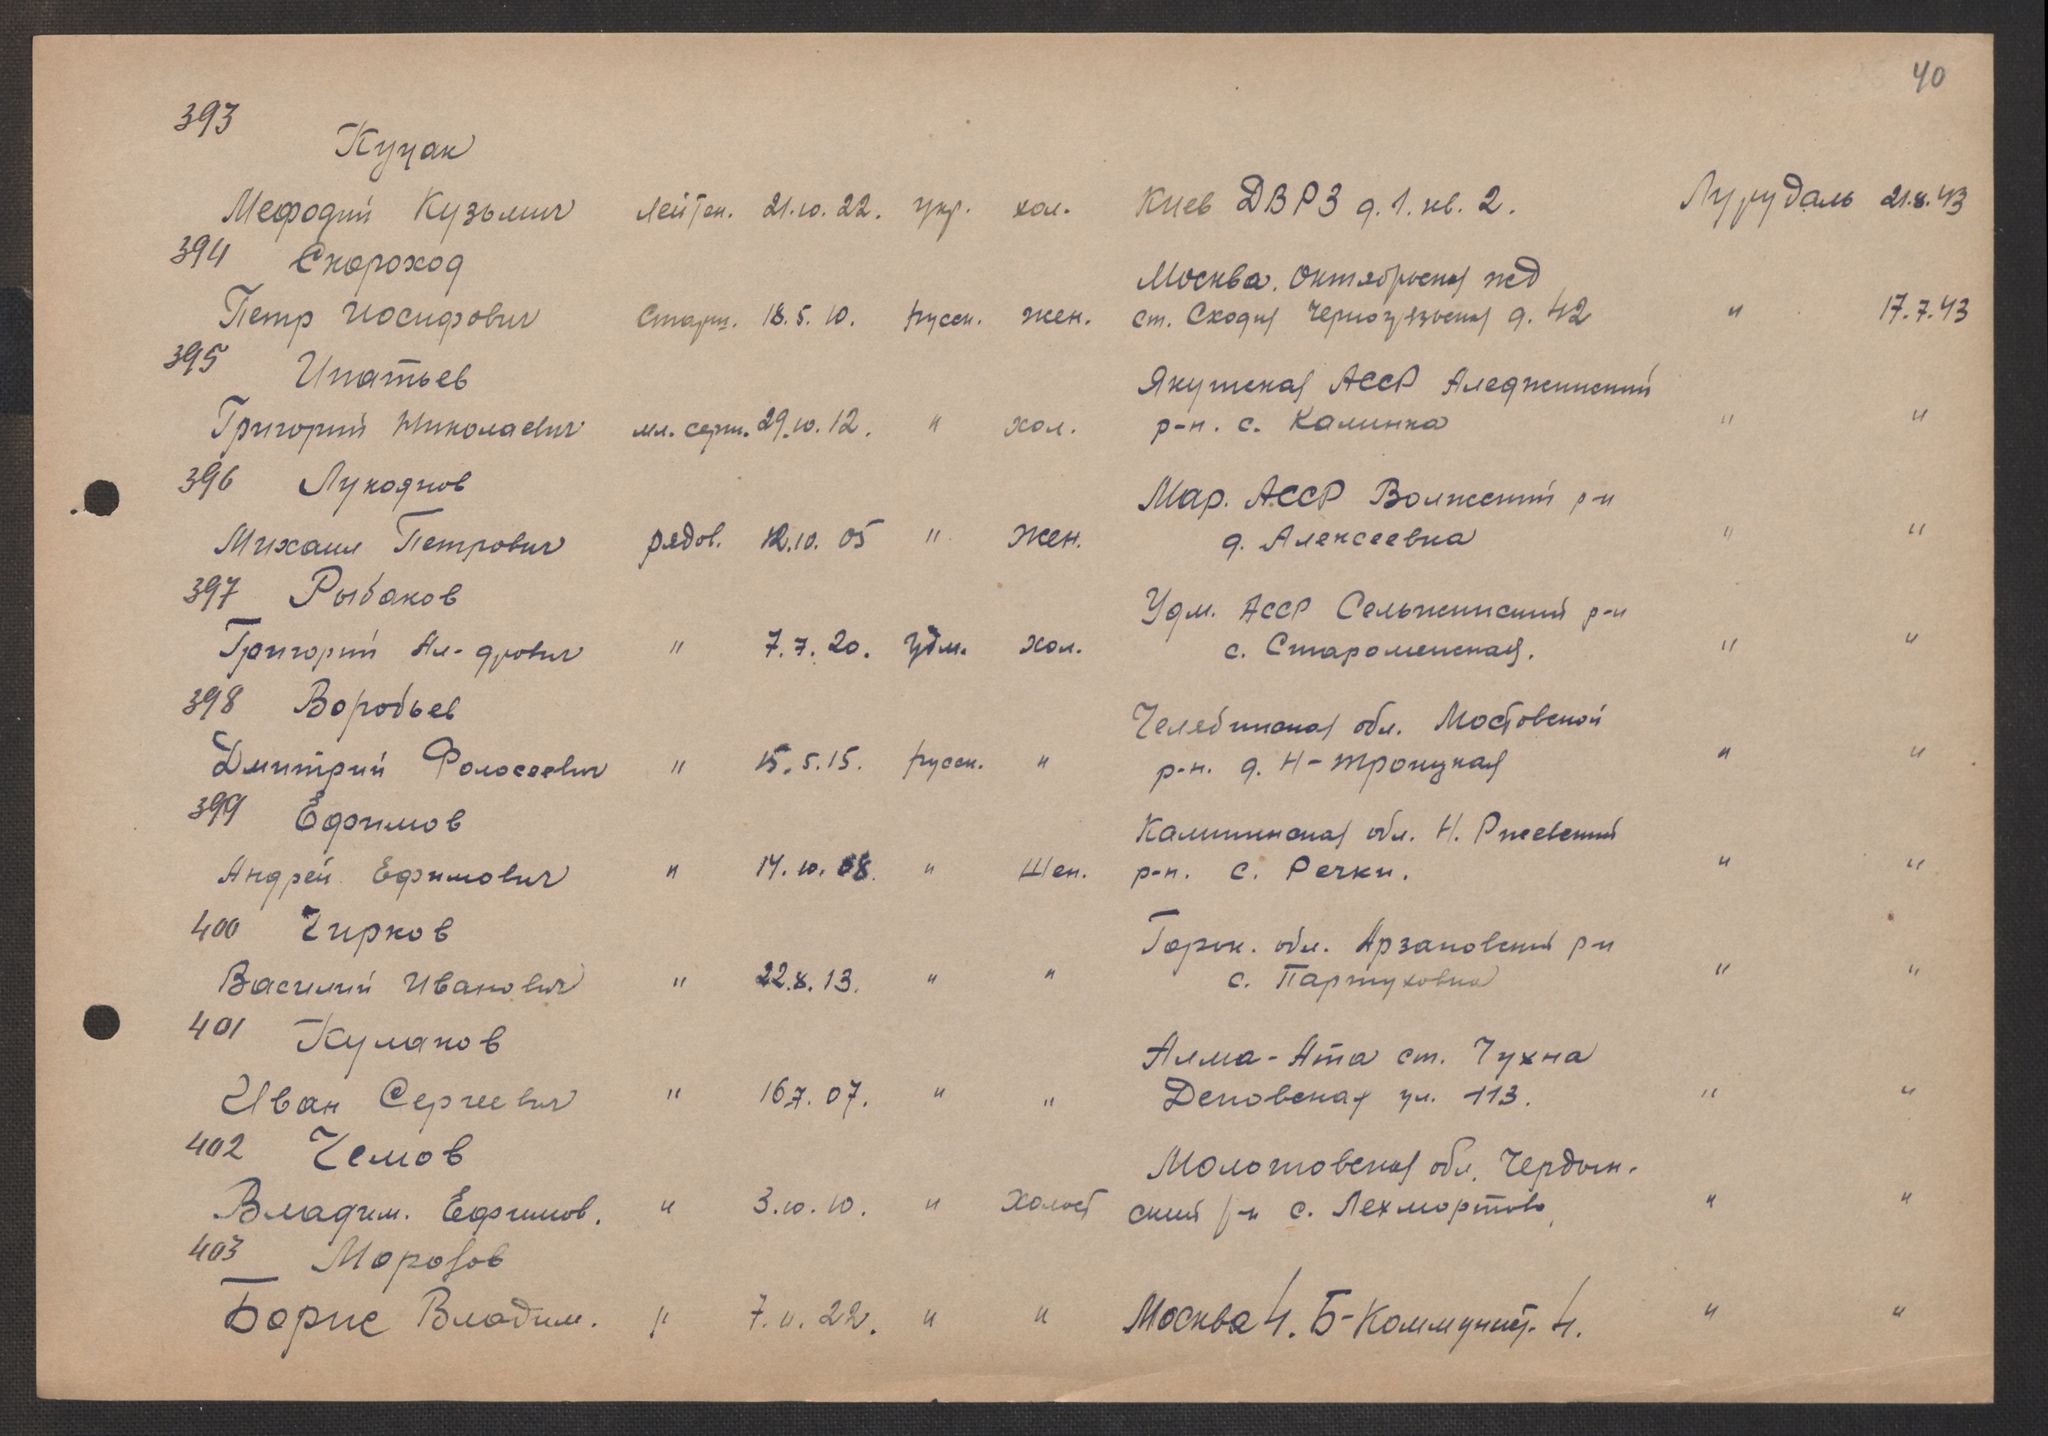 40
393
Куцак
Мефодий Кузьмич лейтен. 21.10.22. укр. хол. Киев ДВРЗ д.1. кв. 2. Лурудаль 21.8.43
394 Скороход
Москва. Октябрьская жд
Петр Иосифович старш. 18.5.10. русск. жен. ст. Сходня Черногрязьская д. 42 " 17.7.43
395 Ипатьев
Якутская АССР Аледжинский
Григорий Николаевич мл. серж. 29.10.12. " хол. р-н. с. Калинка " "
396 Лукоянов
Мар. АССР Волжский р-н
Михаил Петрович рядов. 12.10.05 " жен. д. Алексеевка " "
397 Рыбаков
Удм. АССР Сельжинский р-н
Григорий Ал-дрович " 7.7.20. Удм. хол. с. Староменская. " "
398 Воробьев
Челябинская обл. Мостовской
Дмитрий Фолосеевич " 15.5.15. русск. " р-н. д. Н-Троицкая " "
399 Ефимов
Калининская обл. Н. Ржевский
Андрей Ефимович " 14.10.08. " Жен. р-н. с. Речки. " "
400 Чирков
Горьк. обл. Арзаповский р-н
Василий Иванович " 22.8.13. " " с. Партуховка " "
401 Кулаков
Алма-Ата ст. Чухна
Иван Сергеевич " 16.7.07. " " Деповская ул. 113. " "
402 Чемов
Молотовская обл. Чердын-
Владим. Ефимов. " 3.10.10. " Холост ский р-н с. Лехмортово " "
403 Морозов
Борис Владим. " 7.11.22. " " Москва 4. Б-Коммунист. 4. " "